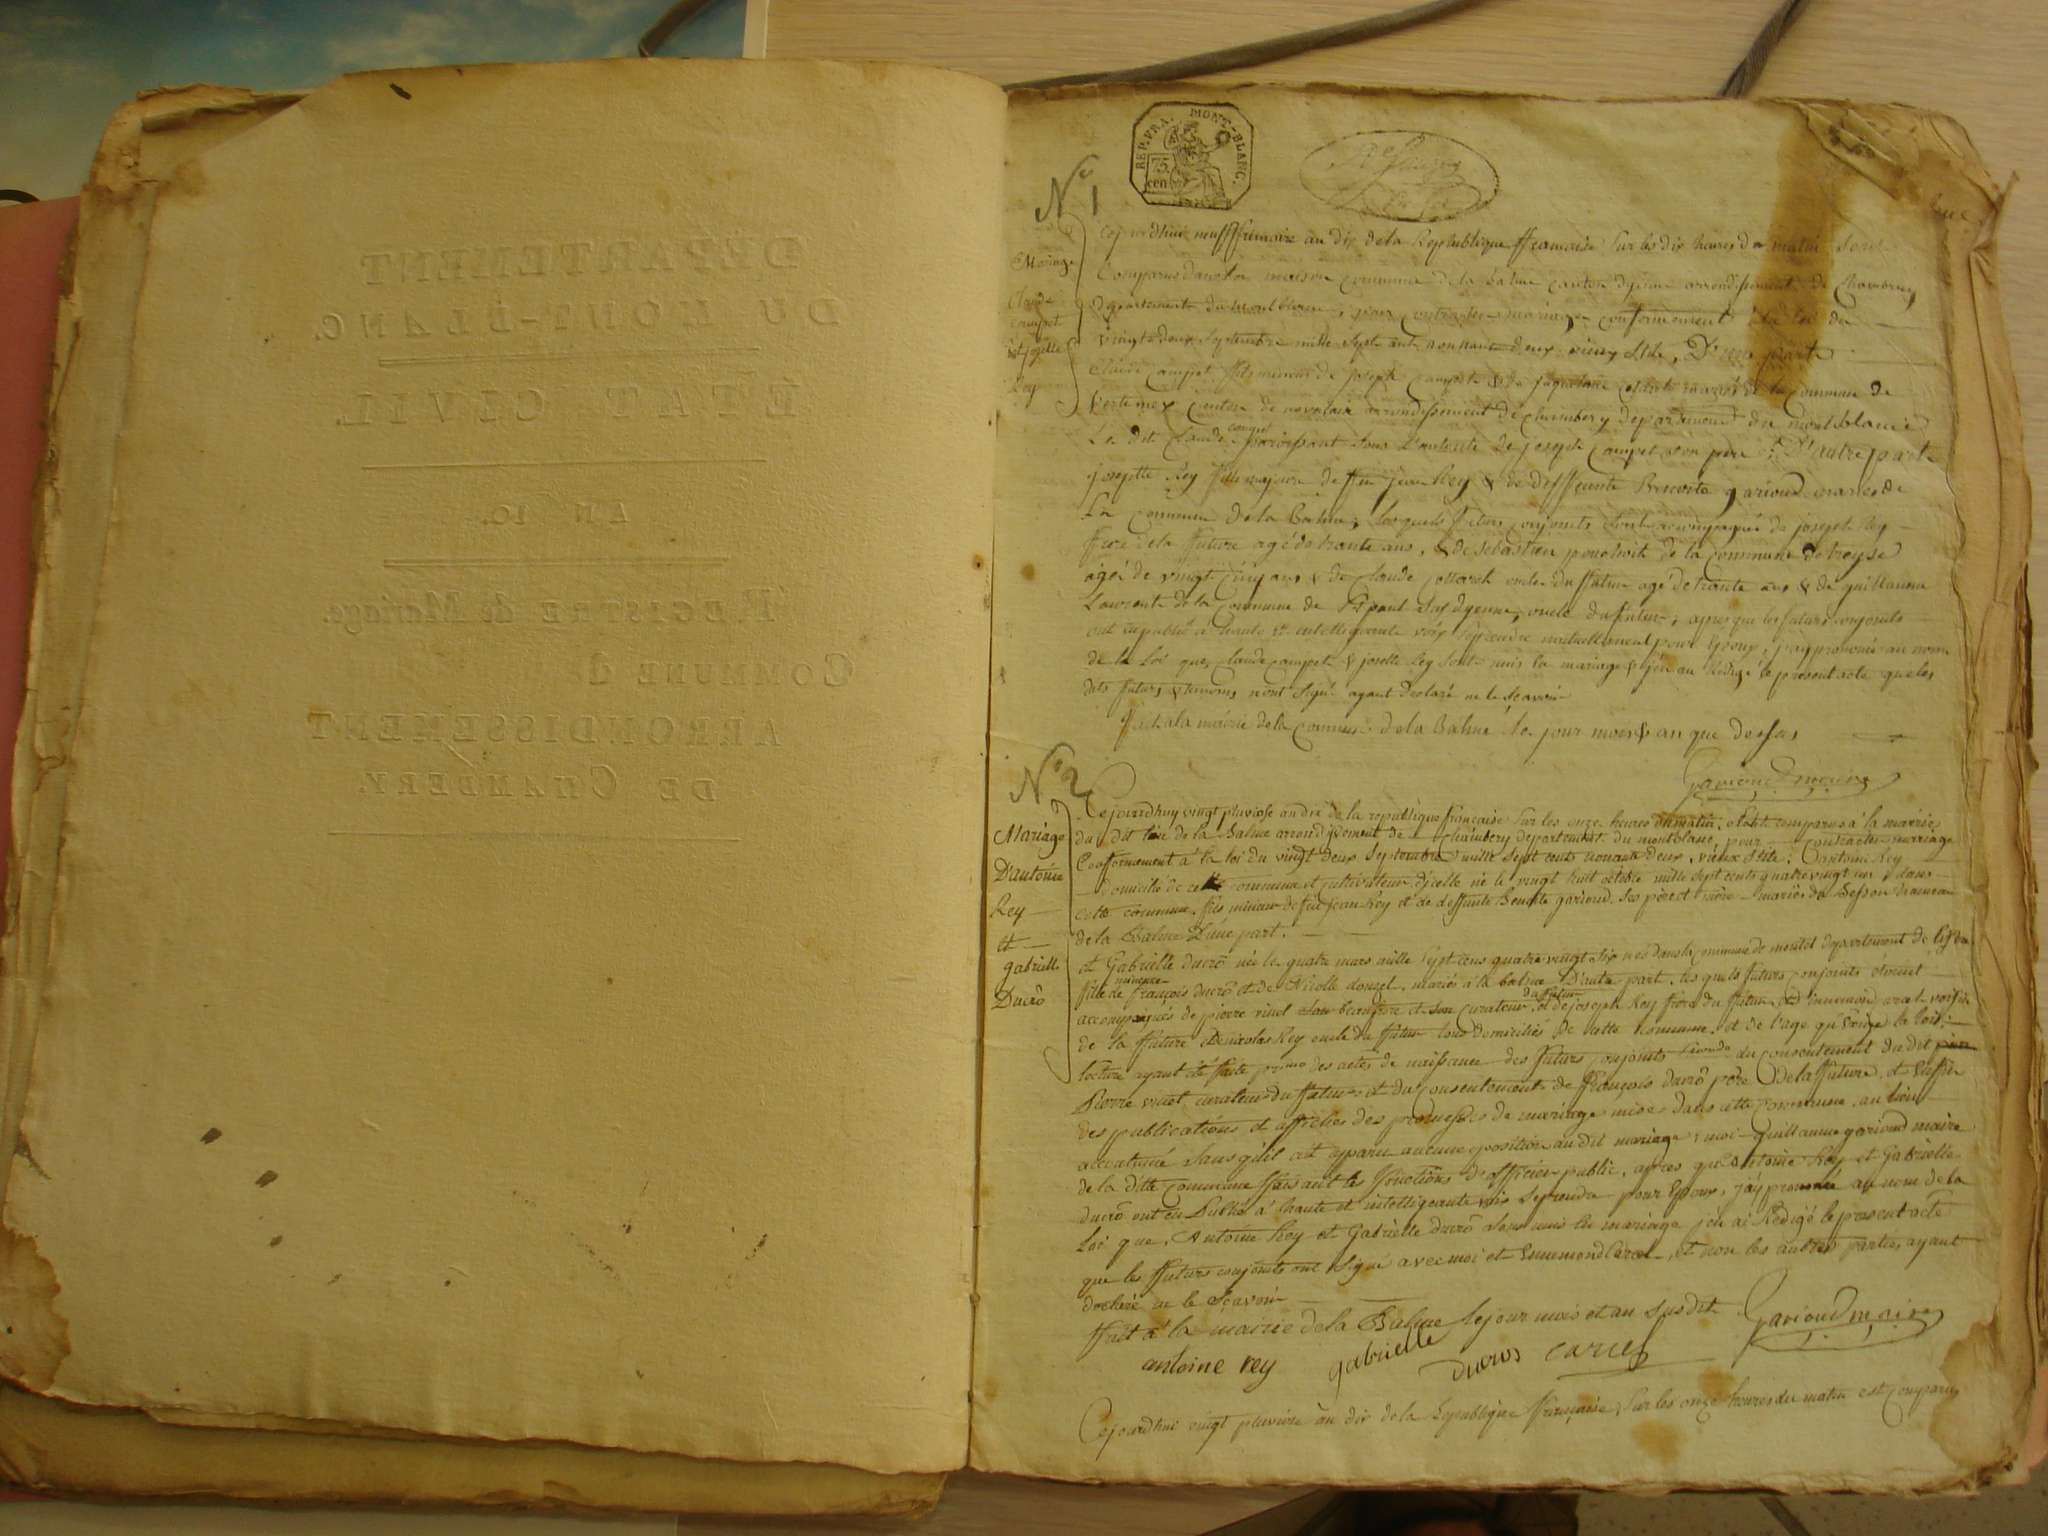 DÉPARTEMENT
DU MONT-BLANC.
ÉTAT CIVIL.
AN 10.
REGISTRE de Mariage.
COMMUNE d
ARRONDISSEMENT
DE CHAMBERY.
REP. FRA. MONT-BLANC.
75
cen
N° 1
Mariage
Claude
campet
et josette
Rey
Cejourdhui neuf frimaire an dix de la Republique francaise sur les dix heures du matin sont
Comparus dans la maison commune de la balme canton dyenne arrondissement de Chambery
departement du montblanc, pour contracter mariage conformement à la loi du
vingt deux Septembre mille Sept cent nonante deux vieux stile, D'une parte
Claude campet fils mineur de joseph campet & de mariés de la commune de
canton de novalaise arrondissement de chambery departement du montblanc
Le dit Claude campet sous L'autorité de joseph campet son pere & D'autre parte
josepte Rey fille majeure de feu jean Rey & de deffeunte gariond mariés de
La Commune de la Balme; Lesquels futurs conjoints sont accompagnés de joseph Rey
frere de la future agé de trante ans, & de sebastien de la commune de
agé de vingt cinq ans & de Claude oncle du futur agé de trante ans & de guillaume
Laurent de la commune de St paul sus dyenne, oncle du futur; apres que les futurs conjoints
ont eu publié à haute et intelligeante voix se prendre mutuellement pour Epoux, j'ay prononcé au nom
de la Loi que Claude campet & josette Rey sont unis en mariage & j'en ai Redigé le présent acte que les
dits futurs & temoins n'ont signé ayant declaré ne le sçavoir
fait à la mairie de la commune de la Balme le jour mois & an que dessus
Gariond maire
N° 2
Mariage
D'antoine
Rey
et
gabrielle
Ducrô
Cejourdhuy vingt pluviose an dix de la republique francaise sur les onze heures du matin, comparus à la mairie
du dit lieu de la Balme arrondissement de Chambery departement du montblanc, pour contracter mariage
Conformement à la loi du vingt deux septembre mille sept cents nonante deux, vieux stile, antoine Rey
domicilié de cette commune et cultivateur d'icelle né le vingt huit octobre mille sept cents quatre vingt un dans
cette commune, fils mineur de feu jean Rey et de deffunte gariond, ses père et mère mariés du hameau
de la Balme D'une part.
et Gabrielle ducrô née le quatre mars mille sept cens quatre vingt six née dans la commune de departement de
fille mineure de françois ducrô et de Nicolle mariés à la balme D'autre part. lesquels futurs conjoints étoient
accompagnés de pierre son beaufrere et son curateur du futur et de joseph Rey frere du futur, et voisin
de la future de nicolas Rey oncle du futur tous domiciliés de cette commune, et de l'age qu'Exige la loi;
lecture ayant été faite primo des actes de naissance des futurs conjoints secondo du consentement du dit
Pierre curateur du futur et du consentement de françois ducrô père de la future, et Enfin
des publications et affiches des promesses de mariage mises dans cette commune, au lieu
accoutumé sans qu'il ait aparu aucune oposition au dit mariage, moi Guillaume gariond maire
de la ditte commune faisant les fonctions d'officier public, apres que Antoine Rey et Gabrielle
ducrô ont eu Publié à haute et intelligeante voix se prendre pour Epoux, j'ay prononcé au nom de la
Loi que, Antoine Rey et Gabrielle ducrô sont unis en mariage j'en ai Redigé le present acte
que les futurs conjoints ont signé avec moi et et non les autres parties, ayant
declaré ne le sçavoir
fait à la mairie de la Balme le jour mois et an susdit
Gariond maire
antoine rey gabrielle ducros carcel
Cejourdhui vingt pluviose an dix de la Republique française, sur les onze heures du matin est comparu